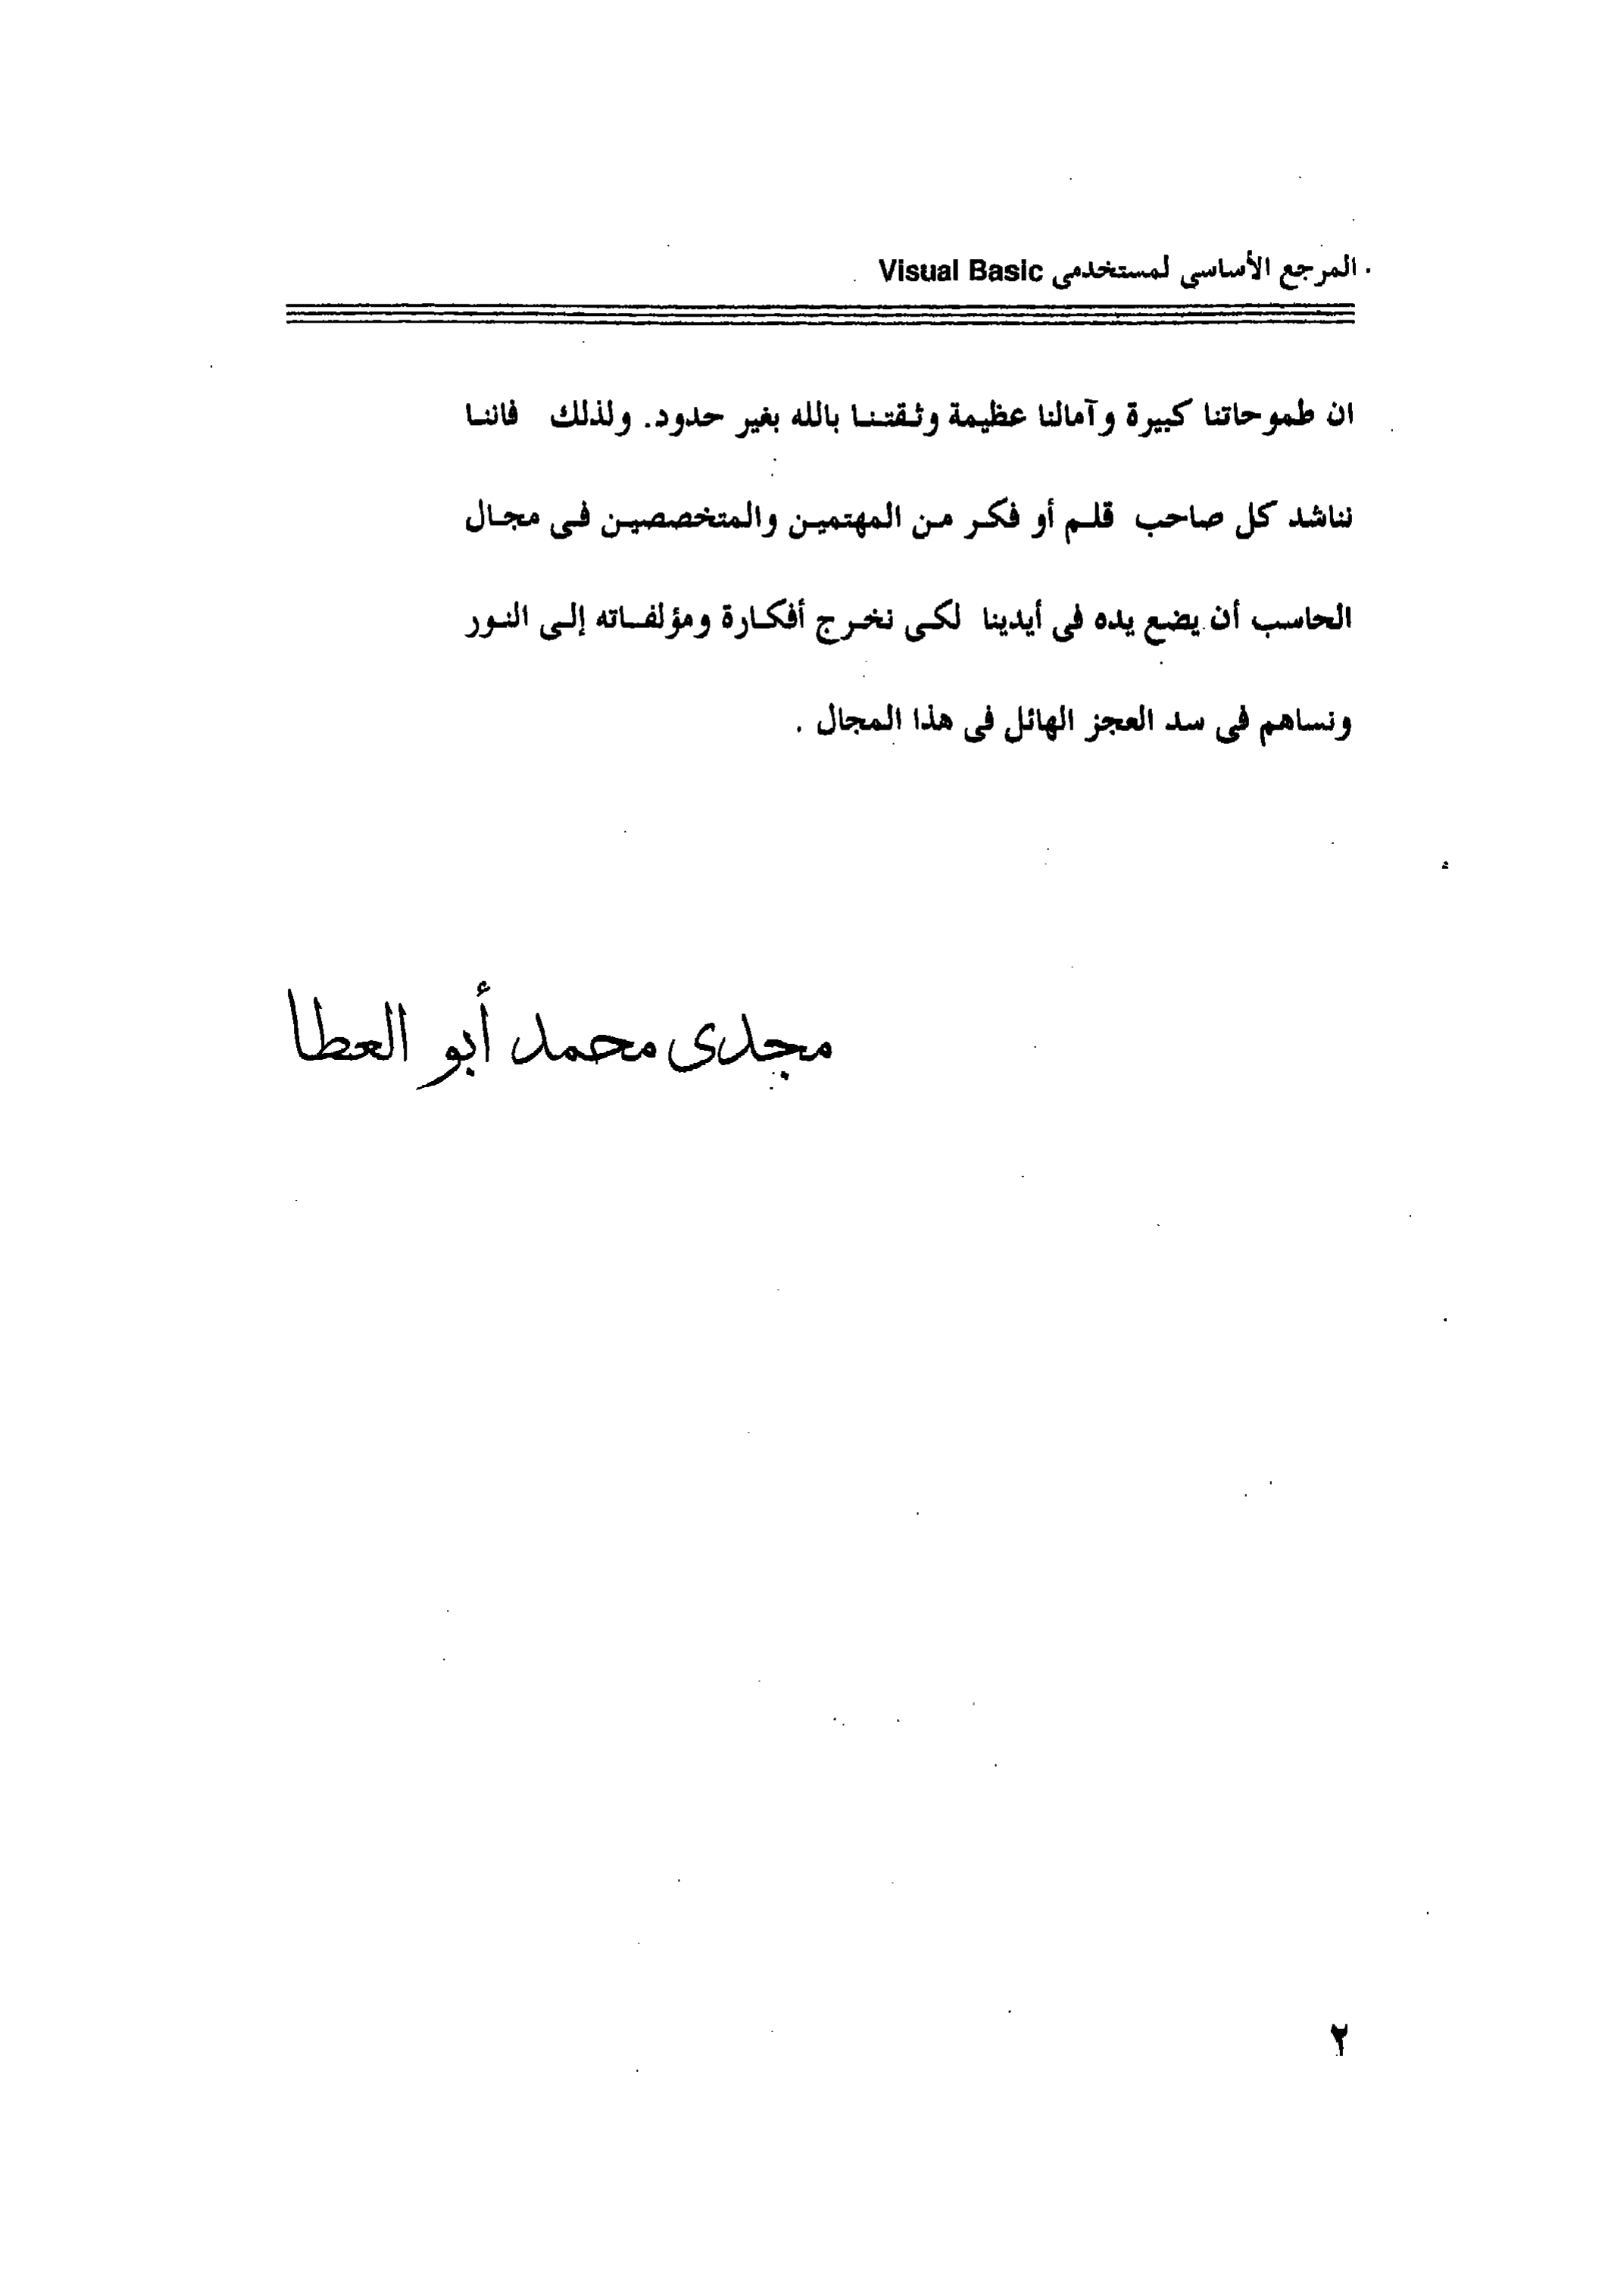 المرجع الأساسى لمستخدمى Visual Basic
ان طموحاتنا كبيرة وآمالنا عظيمة وثقتنا بالله بغير حدود. ولذلك فاننا
نناشد كل صاحب قلم أو فكر من المهتمين والمتخصصين فى مجال
الحاسب أن يضع يده فى أيدينا لكى نخرج أفكارة ومؤلفاته إلى النور
ونساهم فى سد العجز الهائل فى هذا المجال .
مجدى محمد أبو العطا
٢